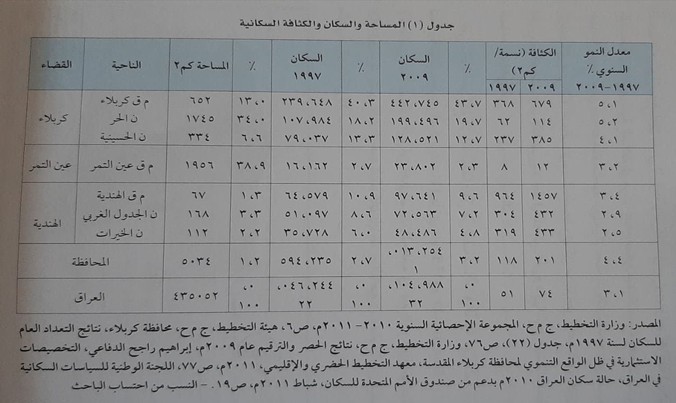 جدول (١) المساحة والسكان والكثافة السكانية
القضاء الناحية المساحة كم٢ ٪ السكان ١٩٩٧ ٪ السكان ٢٠٠٩ ٪ الكثافة (نسمة/كم٢) ١٩٩٧ ٢٠٠٩ معدل النمو السنوي ٪ ١٩٩٧-٢٠٠٩
كربلاء م ق كربلاء ٦٥٢ ١٣،٠ ٢٣٩،٦٤٨ ٤٠،٣ ٤٤٢،٧٤٥ ٤٣،٧ ٣٦٨ ٦٧٩ ٥،١
ن الحر ١٧٤٥ ٣٤،٠ ١٠٧،٩٨٤ ١٨،٢ ١٩٩،٤٩٦ ١٩،٧ ٦٢ ١١٤ ٥،٢
ن الحسينية ٣٣٤ ٦،٦ ٧٩،٠٣٧ ١٣،٣ ١٢٨،٥٢١ ١٢،٧ ٢٣٧ ٣٨٥ ٤،١
عين التمر م ق عين التمر ١٩٥٦ ٣٨،٩ ١٦،١٦٢ ٢،٧ ٢٣،٨٠٢ ٢،٣ ٨ ١٢ ٣،٢
الهندية م ق الهندية ٦٧ ١،٣ ٦٤،٥٧٩ ١٠،٩ ٩٧،٦٤١ ٩،٦ ٩٦٤ ١٤٥٧ ٣،٤
ن الجدول الغربي ١٦٨ ٣،٣ ٥١،٠٩٧ ٨،٦ ٧٢،٥٦٣ ٧،٢ ٣٠٤ ٤٣٢ ٢،٩
ن الخيرات ١١٢ ٢،٢ ٣٥،٧٢٨ ٦،٠ ٤٨،٤٨٦ ٤،٨ ٣١٩ ٤٣٣ ٢،٥
المحافظة ٥٠٣٤ ١،٢ ٥٩٤،٢٣٥ ٢،٧ ،٠١٣،٢٥٤ ١ ٣،٢ ١١٨ ٢٠١ ٤،٤
العراق ٤٣٥٠٥٢ ،٠ ١٠٠ ،٠٤٦،٢٤٤ ٢٢ ،٠ ١٠٠ ،١٠٤،٩٨٨ ٣٢ ،٠ ١٠٠ ٥١ ٧٤ ٣،١
المصدر: وزارة التخطيط، ج م ح، المجموعة الإحصائية السنوية ٢٠١٠-٢٠١١م، ص٦، هيئة التخطيط، ج م ح، محافظة كربلاء، نتائج التعداد العام
للسكان لسنة ١٩٩٧م، جدول (٢٢)، ص٧٦، وزارة التخطيط، ج م ح، نتائج الحصر والترقيم عام ٢٠٠٩م، إبراهيم راجح الدفاعي، التخصيصات
الاستثمارية في ظل الواقع التنموي لمحافظة كربلاء المقدسة، معهد التخطيط الحضري والإقليمي، ٢٠١١م، ص٧٧، اللجنة الوطنية للسياسات السكانية
في العراق، حالة سكان العراق ٢٠١٠م بدعم من صندوق الأمم المتحدة للسكان، شباط ٢٠١١م، ص١٩. - النسب من احتساب الباحث